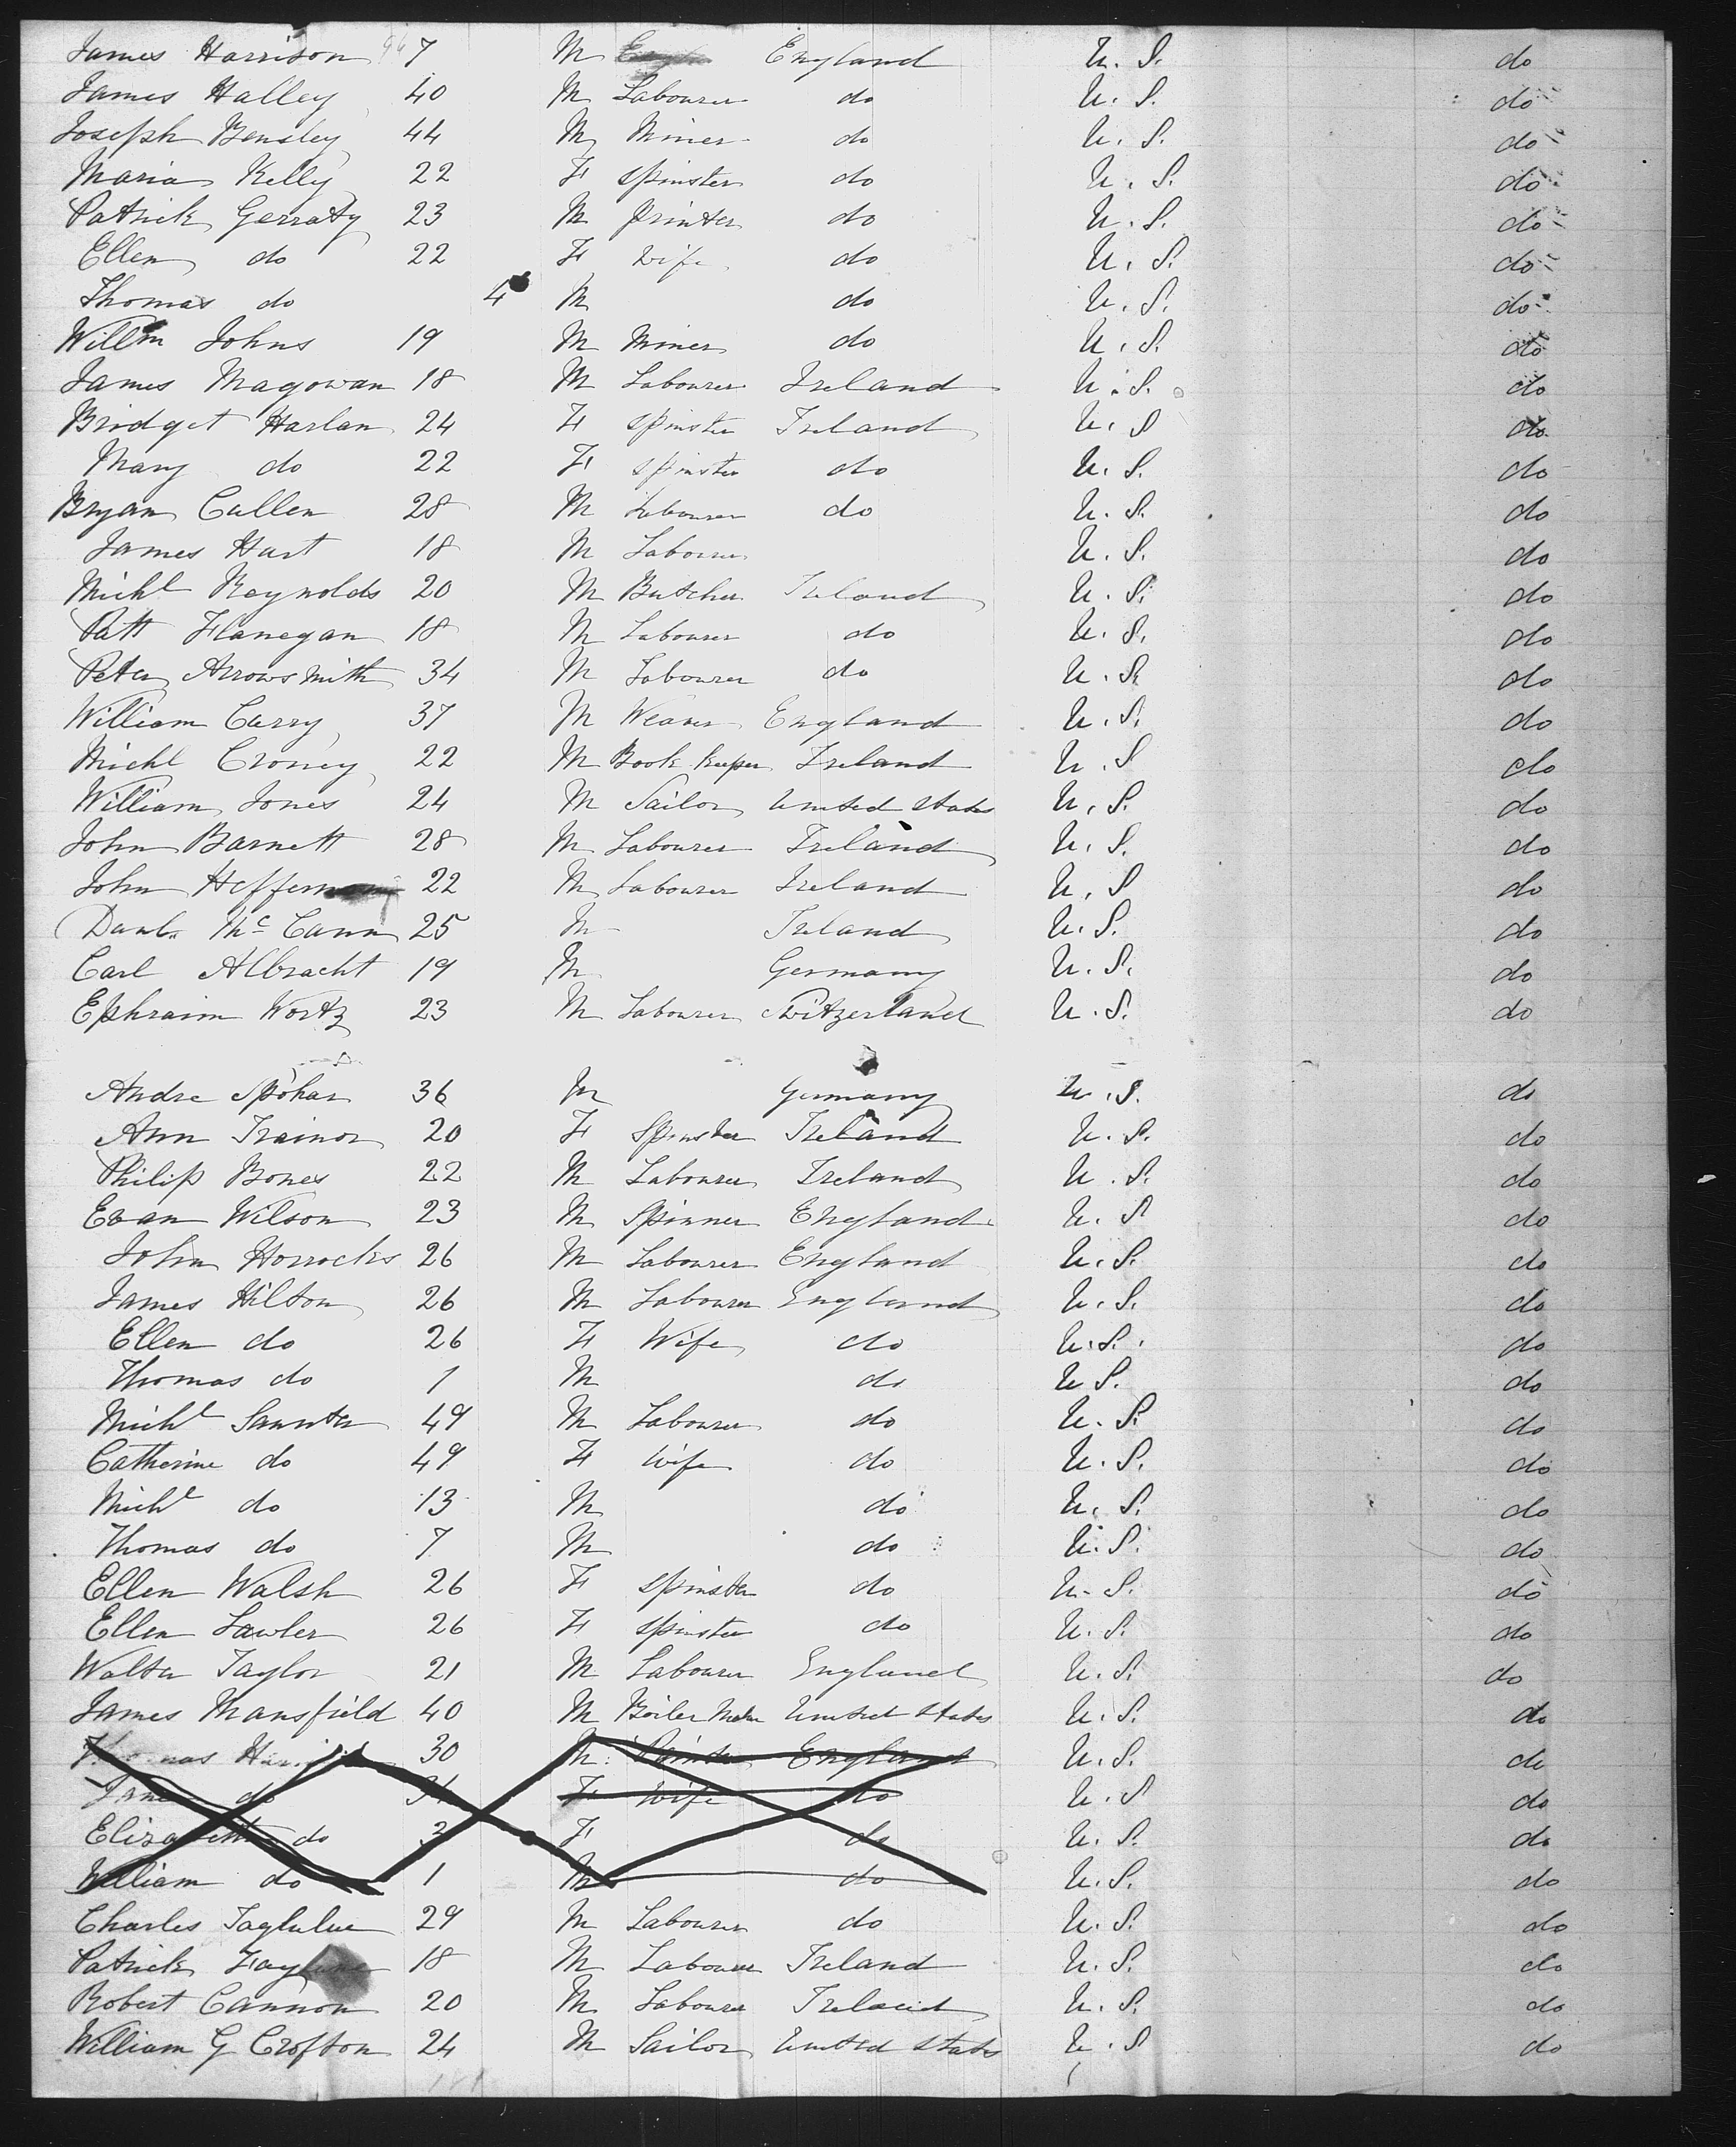 James Harrison 7 M England U. S. do
James Halley 40 M Labourer do U. S. do
Joseph Bensley 44 M Miner do U. S. do
Maria Kelly 22 F Spinster do U. S. do
Patrick Gerraty 23 M printer do U. S. do
Ellen do 22 F Wife do U. S. do
Thomas do 4 M do U. S. do
Willm Johns 19 M Miner do U. S. do
James Magowan 18 M Labourer Ireland U. S. do
Bridget Harlan 24 F Spinster Ireland U. S do
Mary do 22 F Spinster do U. S. do
Bryan Cullen 28 M Labourer do U. S. do
James Hart 18 M Labourer U. S. do
Michl Reynolds 20 M Butcher Ireland U. S. do
Patt Flanegan 18 M Labourer do U. S. do
Peter Arrowsmith 34 M Labourer do U. S. do
William Carry 37 M Weaver England U. S. do
Michl Croney 22 M Book keeper Ireland U. S do
William Jones 24 M Sailor United States U. S. do
John Barnett 28 M Labourer Ireland U. S. do
John 22 M Labourer Ireland U. S do
Danl. McCann 25 M Ireland U. S. do
Carl Albracht 19 M Germany U. S. do
Ephraim Wortz 23 M Labourer Switzerland U. S. do
Andre Spohar 36 M Germany U. S. do
Ann Trainor 20 F Spinster Ireland U. S. do
Philip Bones 22 M Labourer Ireland U. S. do
Evan Wilson 23 M Spinner England U. S do
John Horrocks 26 M Labourer England U. S. do
James Hilton 26 M Labourer England U. S. do
Ellen do 26 F Wife do U. S. do
Thomas do 1 M do U S. do
Michl 49 M Labourer do U. S. do
Catherine do 49 F Wife do U. S. do
Michl do 13 M do U. S. do
Thomas do 7 M do U. S. do
Ellen Walsh 26 F Spinster do U. S. do
Ellen Lawler 26 F Spinster do U. S. do
Walter Taylor 21 M Labourer England U. S. do
James Mansfield 40 M Boiler Maker United States U. S. do
Thomas 30 M England U. S. do
Jane do F Wife do U. S do
Elizabeth do 3 F do U. S. do
William do 1 M do U. S. do
Charles 29 M Labourer do U. S. do
Patrick 18 M Labourer Ireland U. S. do
Robert Cannon 20 M Labourer Ireland U. S. do
William G Crofton 24 M Sailor United States U. S do